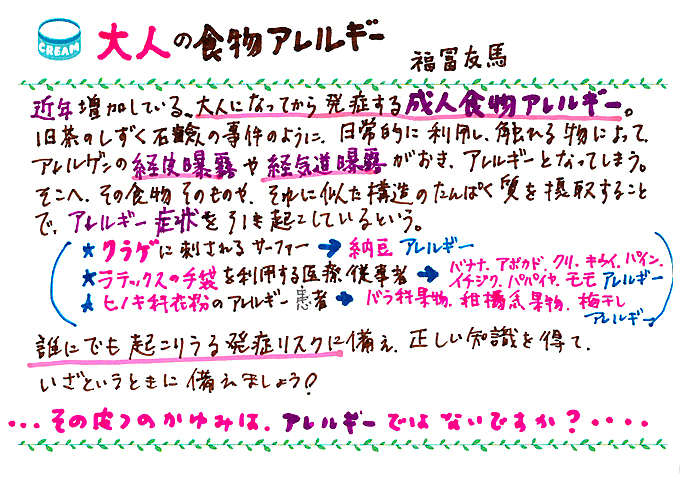 CREAM
大人の食物アレルギー
福冨友馬
近年増加している、大人になってから発症する成人食物アレルギー。
旧茶のしずく石鹸の事件のように、日常的に利用し、触れる物によって、
アレルゲンの経皮曝露や経気道曝露がおき、アレルギーとなってしまう。
そこへ、その食物そのものや、それに似た構造のたんぱく質を摂取すること
で、アレルギー症状を引き起こしているという。
★クラゲに刺されるサーファー→納豆アレルギー
★ラテックスの手袋を利用する医療従事者→バナナ、アボカド、クリ、キウイ、パイン、
イチジク、パパイヤ、モモアレルギー
★ヒノキ科花粉のアレルギー患者→バラ科果物、柑橘系果物、梅干し
アレルギー
誰にでも起こりうる発症リスクに備え、正しい知識を得て、
いざというときに備えましょう!
・・・その皮フのかゆみは、アレルギーではないですか?・・・・